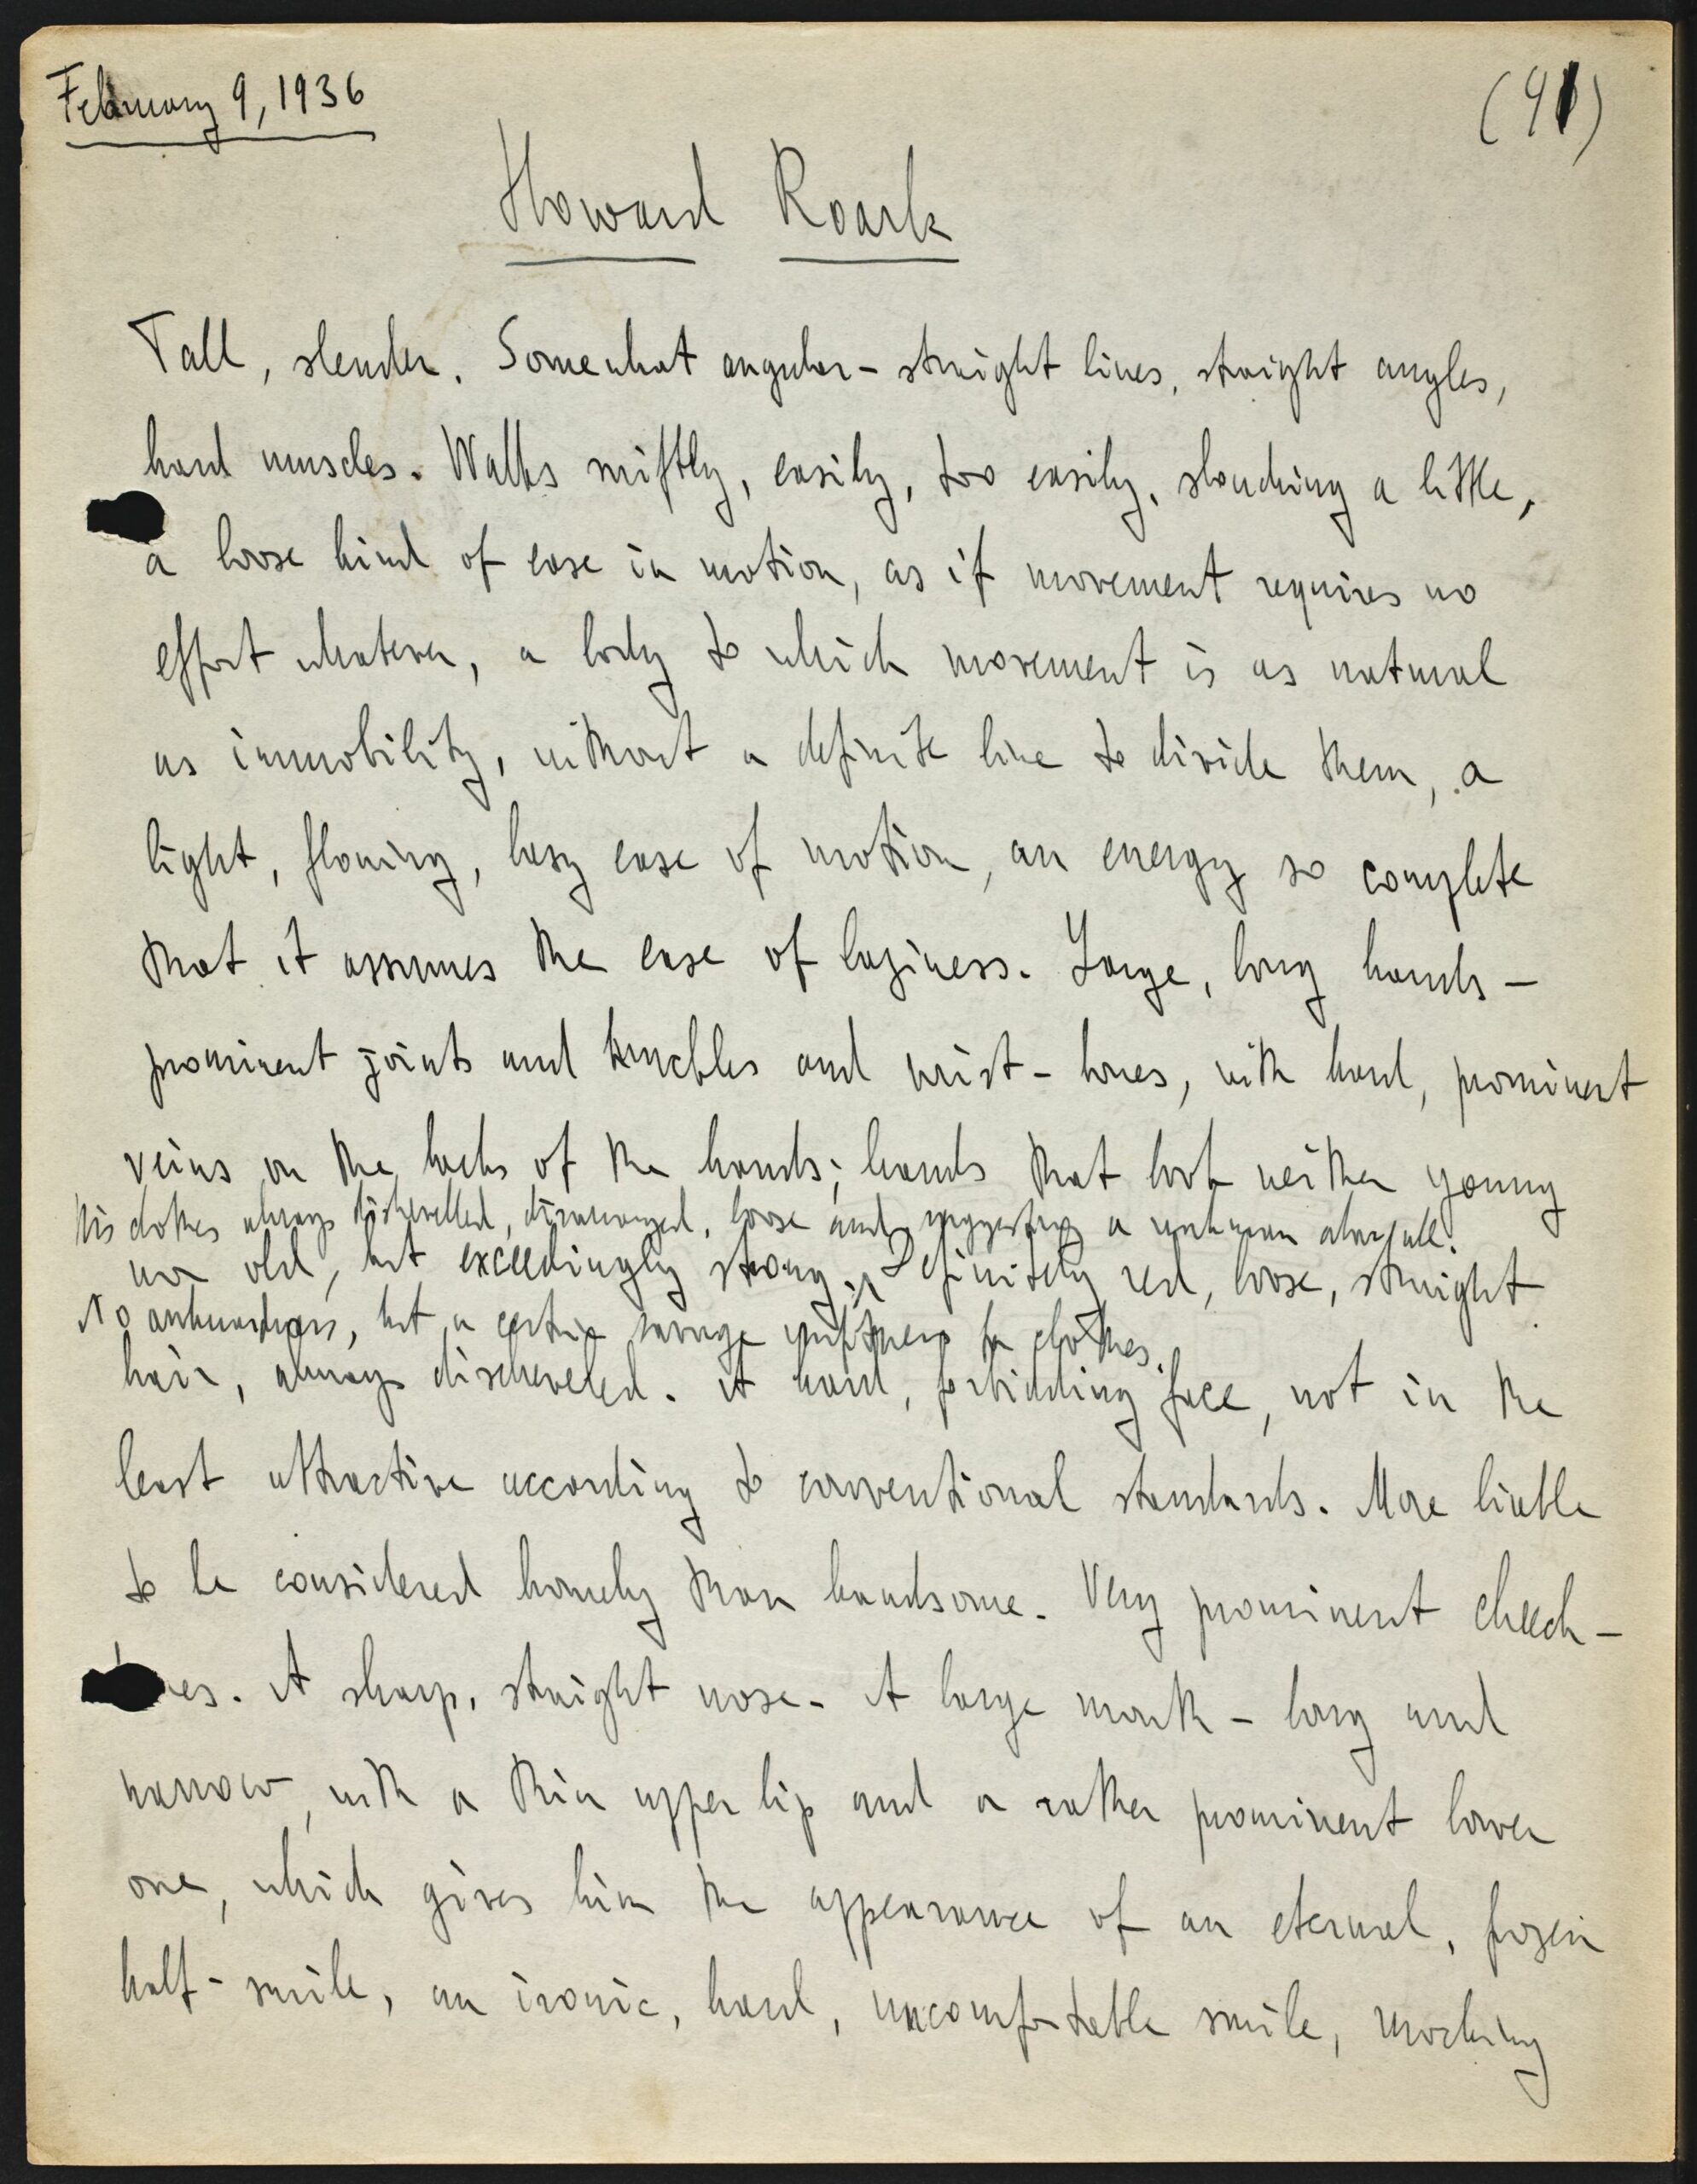 February 9, 1936
(91)
Howard Roark
Tall, slender. Somewhat angular – straight lines, straight angles,
hard muscles. Walks swiftly, easily, too easily, slouching a little,
a loose kind of ease in motion, as if movement requires no
effort whatever, a body to which movement is as natural
as immobility, without a definite line to divide them, a
light, flowing, lazy ease of motion, an energy so complete
that it assumes the ease of laziness. Large, long hands –
prominent joints and knuckles and wrist-bones, with hard, prominent
veins on the backs of the hands; hands that look neither young
His clothes always dishevelled, disarranged, loose and suggesting a unknown
nor old, but exceedingly strong. Definitely red, loose, straight
No awkwardness, but a certain savage unfitness for clothes.
hair, always discheveled. A hard, forbidding face, not in the
least attractive according to conventional standards. More liable
to be considered homely than handsome. Very prominent cheeck-
bones. A sharp, straight nose. A large mouth – long and
narrow, with a thin upper lip and a rather prominent lower
one, which gives him the appearance of an eternal, frozen
half-smile, an ironic, hard, uncomfortable smile, mocking